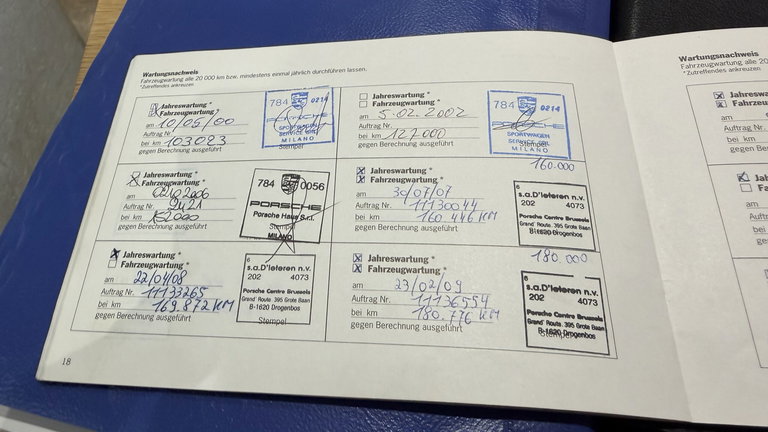 Wartungsnachweis
Fahrzeugwartung alle 20 000 km bzw. mindestens einmal jährlich durchführen lassen.
*Zutreffendes ankreuzen
Jahreswartung *
Fahrzeugwartung *
am 10/05/00
Auftrag Nr.
bei km 103023
gegen Berechnung ausgeführt
784 0214
SPORTWAGEN
SERVICE SRL
MILANO
Stempel
Jahreswartung *
Fahrzeugwartung *
am 5.02.2002
Auftrag Nr.
bei km 127000
gegen Berechnung ausgeführt
784 0214
SPORTWAGEN
SERVICE SRL
MILANO
Stempel
Jahreswartung *
Fahrzeugwartung *
am
Auftrag Nr. 9421
bei km
gegen Berechnung ausgeführt
784 0056
PORSCHE
Porsche Haus S.r.l.
Stempel
MILANO
160.000
Jahreswartung *
Fahrzeugwartung *
am 30/07/07
Auftrag Nr. 11130044
bei km 160 446 KM
gegen Berechnung ausgeführt
6
s.a.D'Ieteren n.v.
202 4073
Porsche Centre Brussels
Grand' Route, 395 Grote Baan
B-1620 Drogenbos
Jahreswartung *
Fahrzeugwartung *
am 22/04/08
Auftrag Nr. 11133265
bei km 169.872 KM
gegen Berechnung ausgeführt
6
s.a.D'Ieteren n.v.
202 4073
Porsche Centre Brussels
Grand' Route, 395 Grote Baan
B-1620 Drogenbos
Stempel
180.000
Jahreswartung *
Fahrzeugwartung *
am 23/02/09
Auftrag Nr. 11136554
bei km 180.776 KM
gegen Berechnung ausgeführt
6
s.a.D'Ieteren n.v.
202 4073
Porsche Centre Brussels
Grand' Route, 395 Grote Baan
B-1620 Drogenbos
18
Wartungsnachweis
Fahrzeugwartung alle 20
*Zutreffendes ankreuzen
Jahreswa
Fahrzeug
am
Auftrag Nr.
bei km
gegen Be